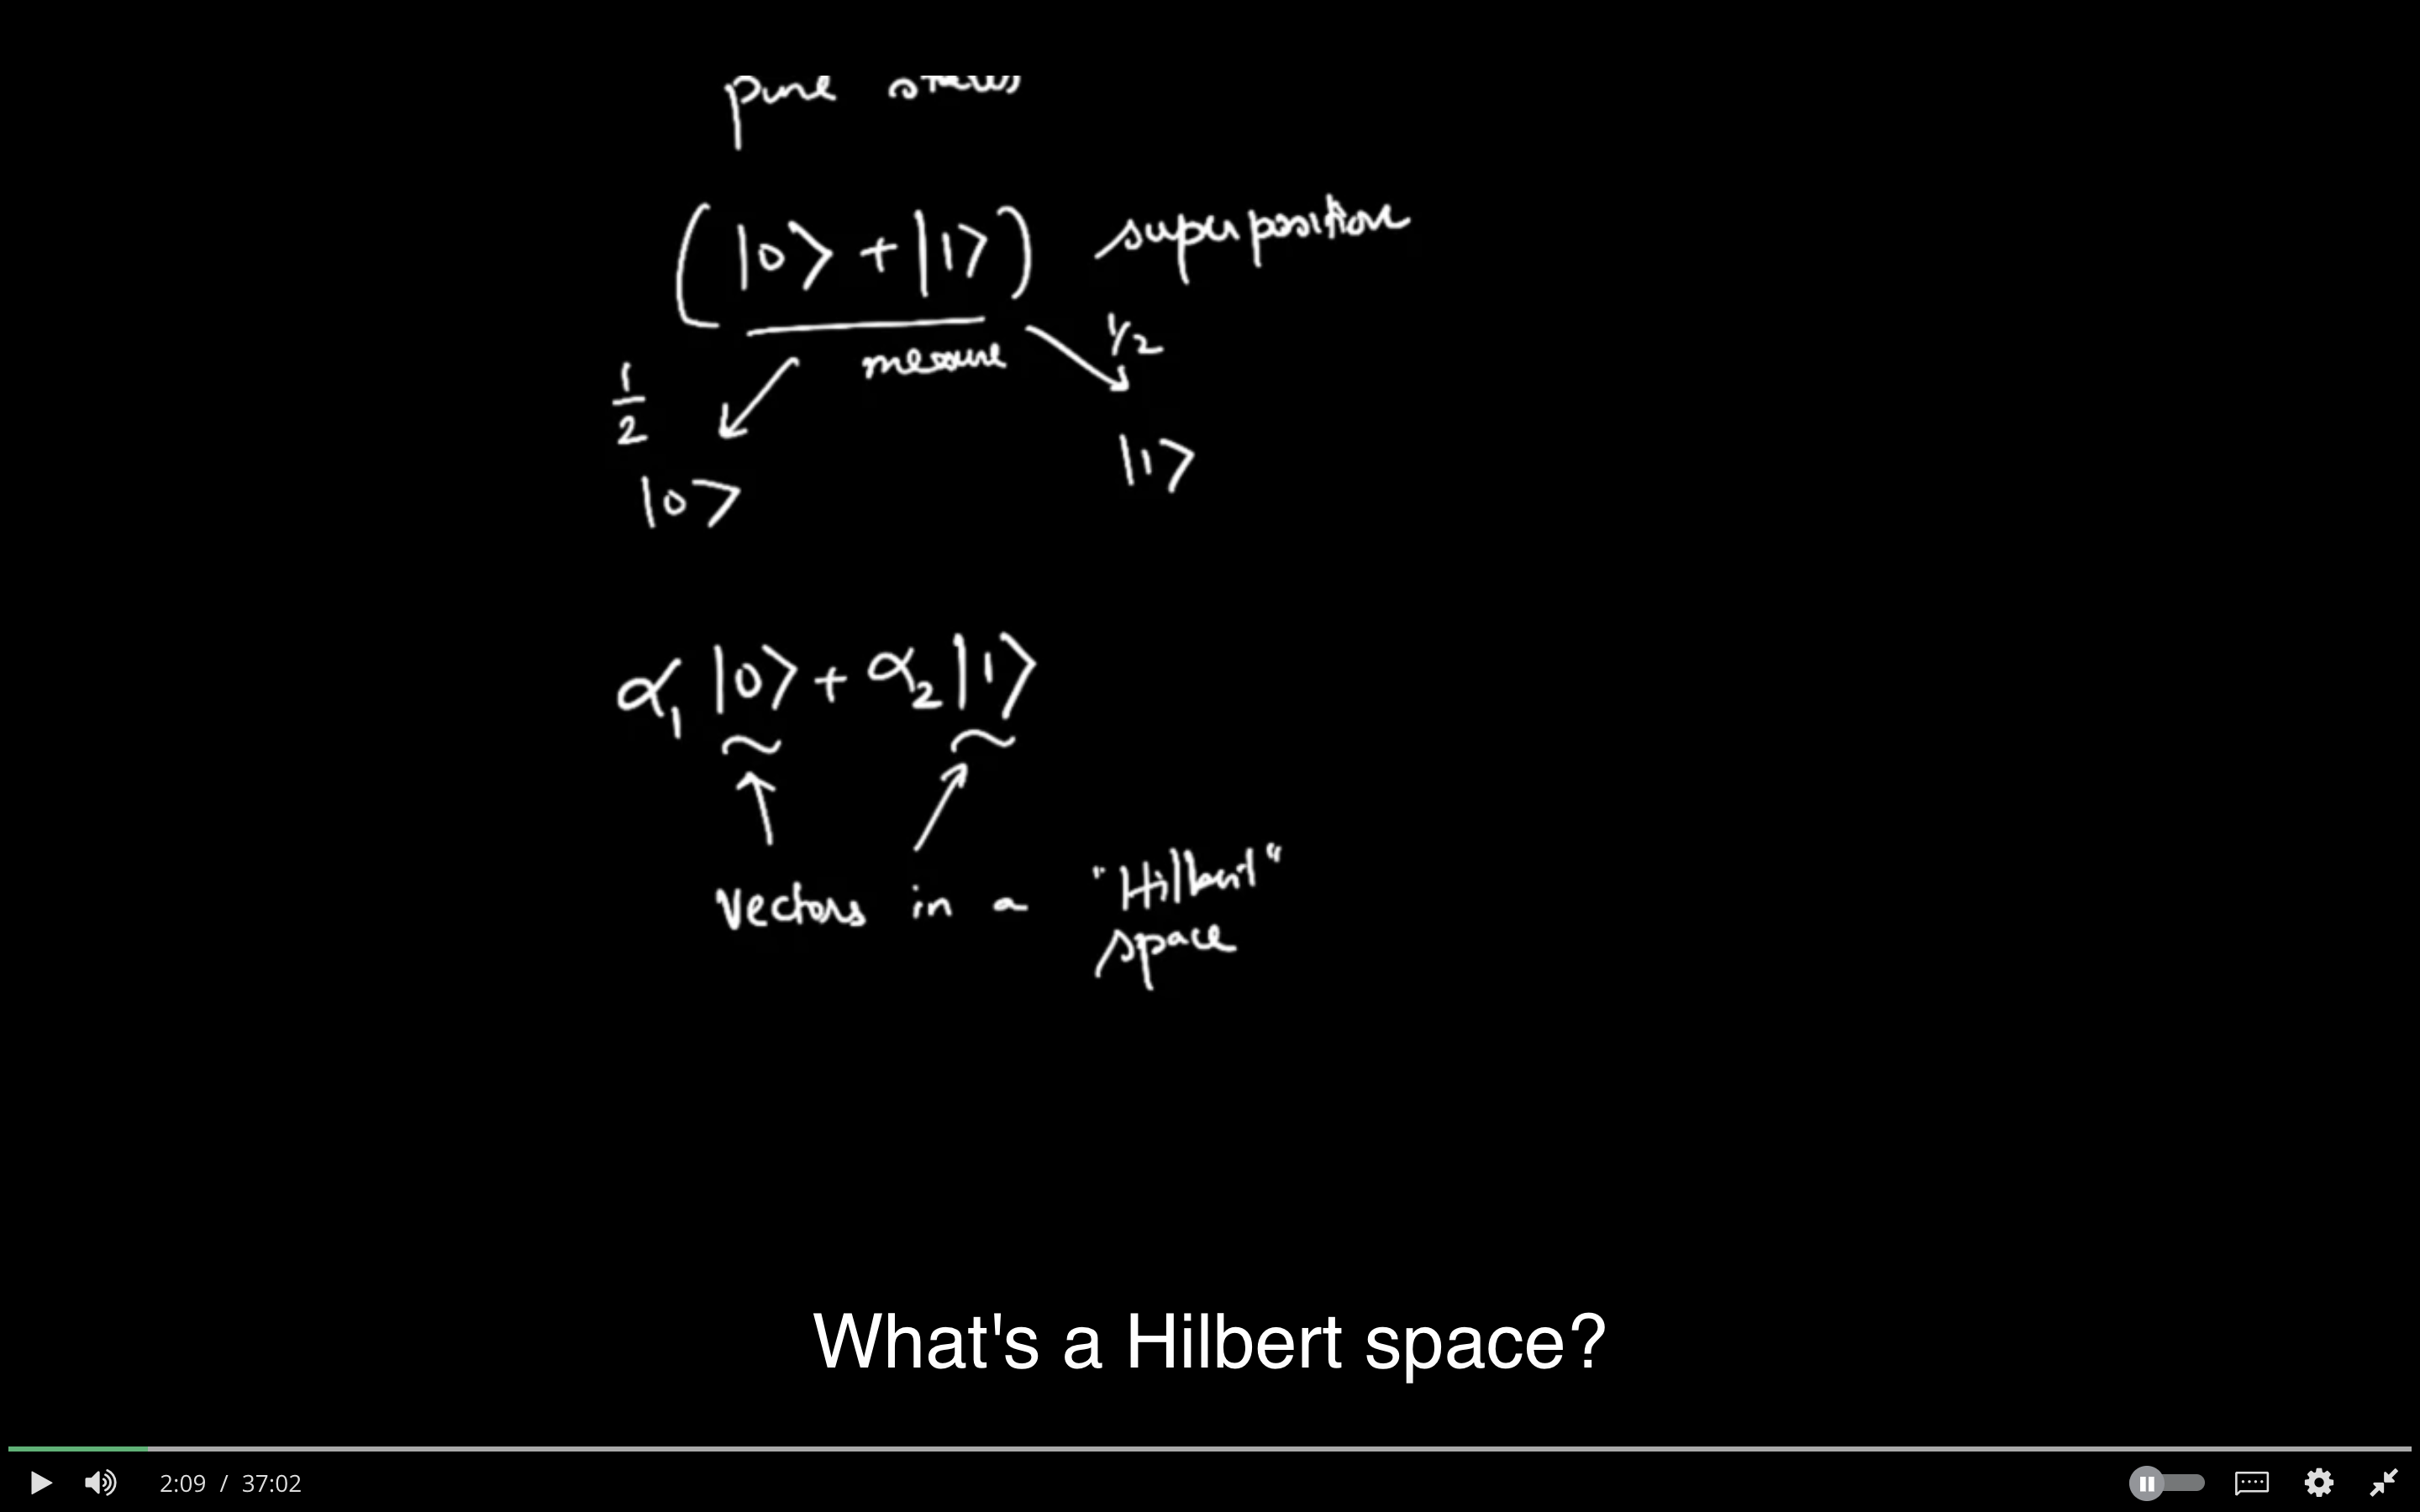 pure states
(|0⟩ + |1⟩) superposition
measure
1/2
1/2
|0⟩
|1⟩
α₁ |0⟩ + α₂ |1⟩
vectors in a "Hilbert"
space
What's a Hilbert space?
2:09 / 37:02